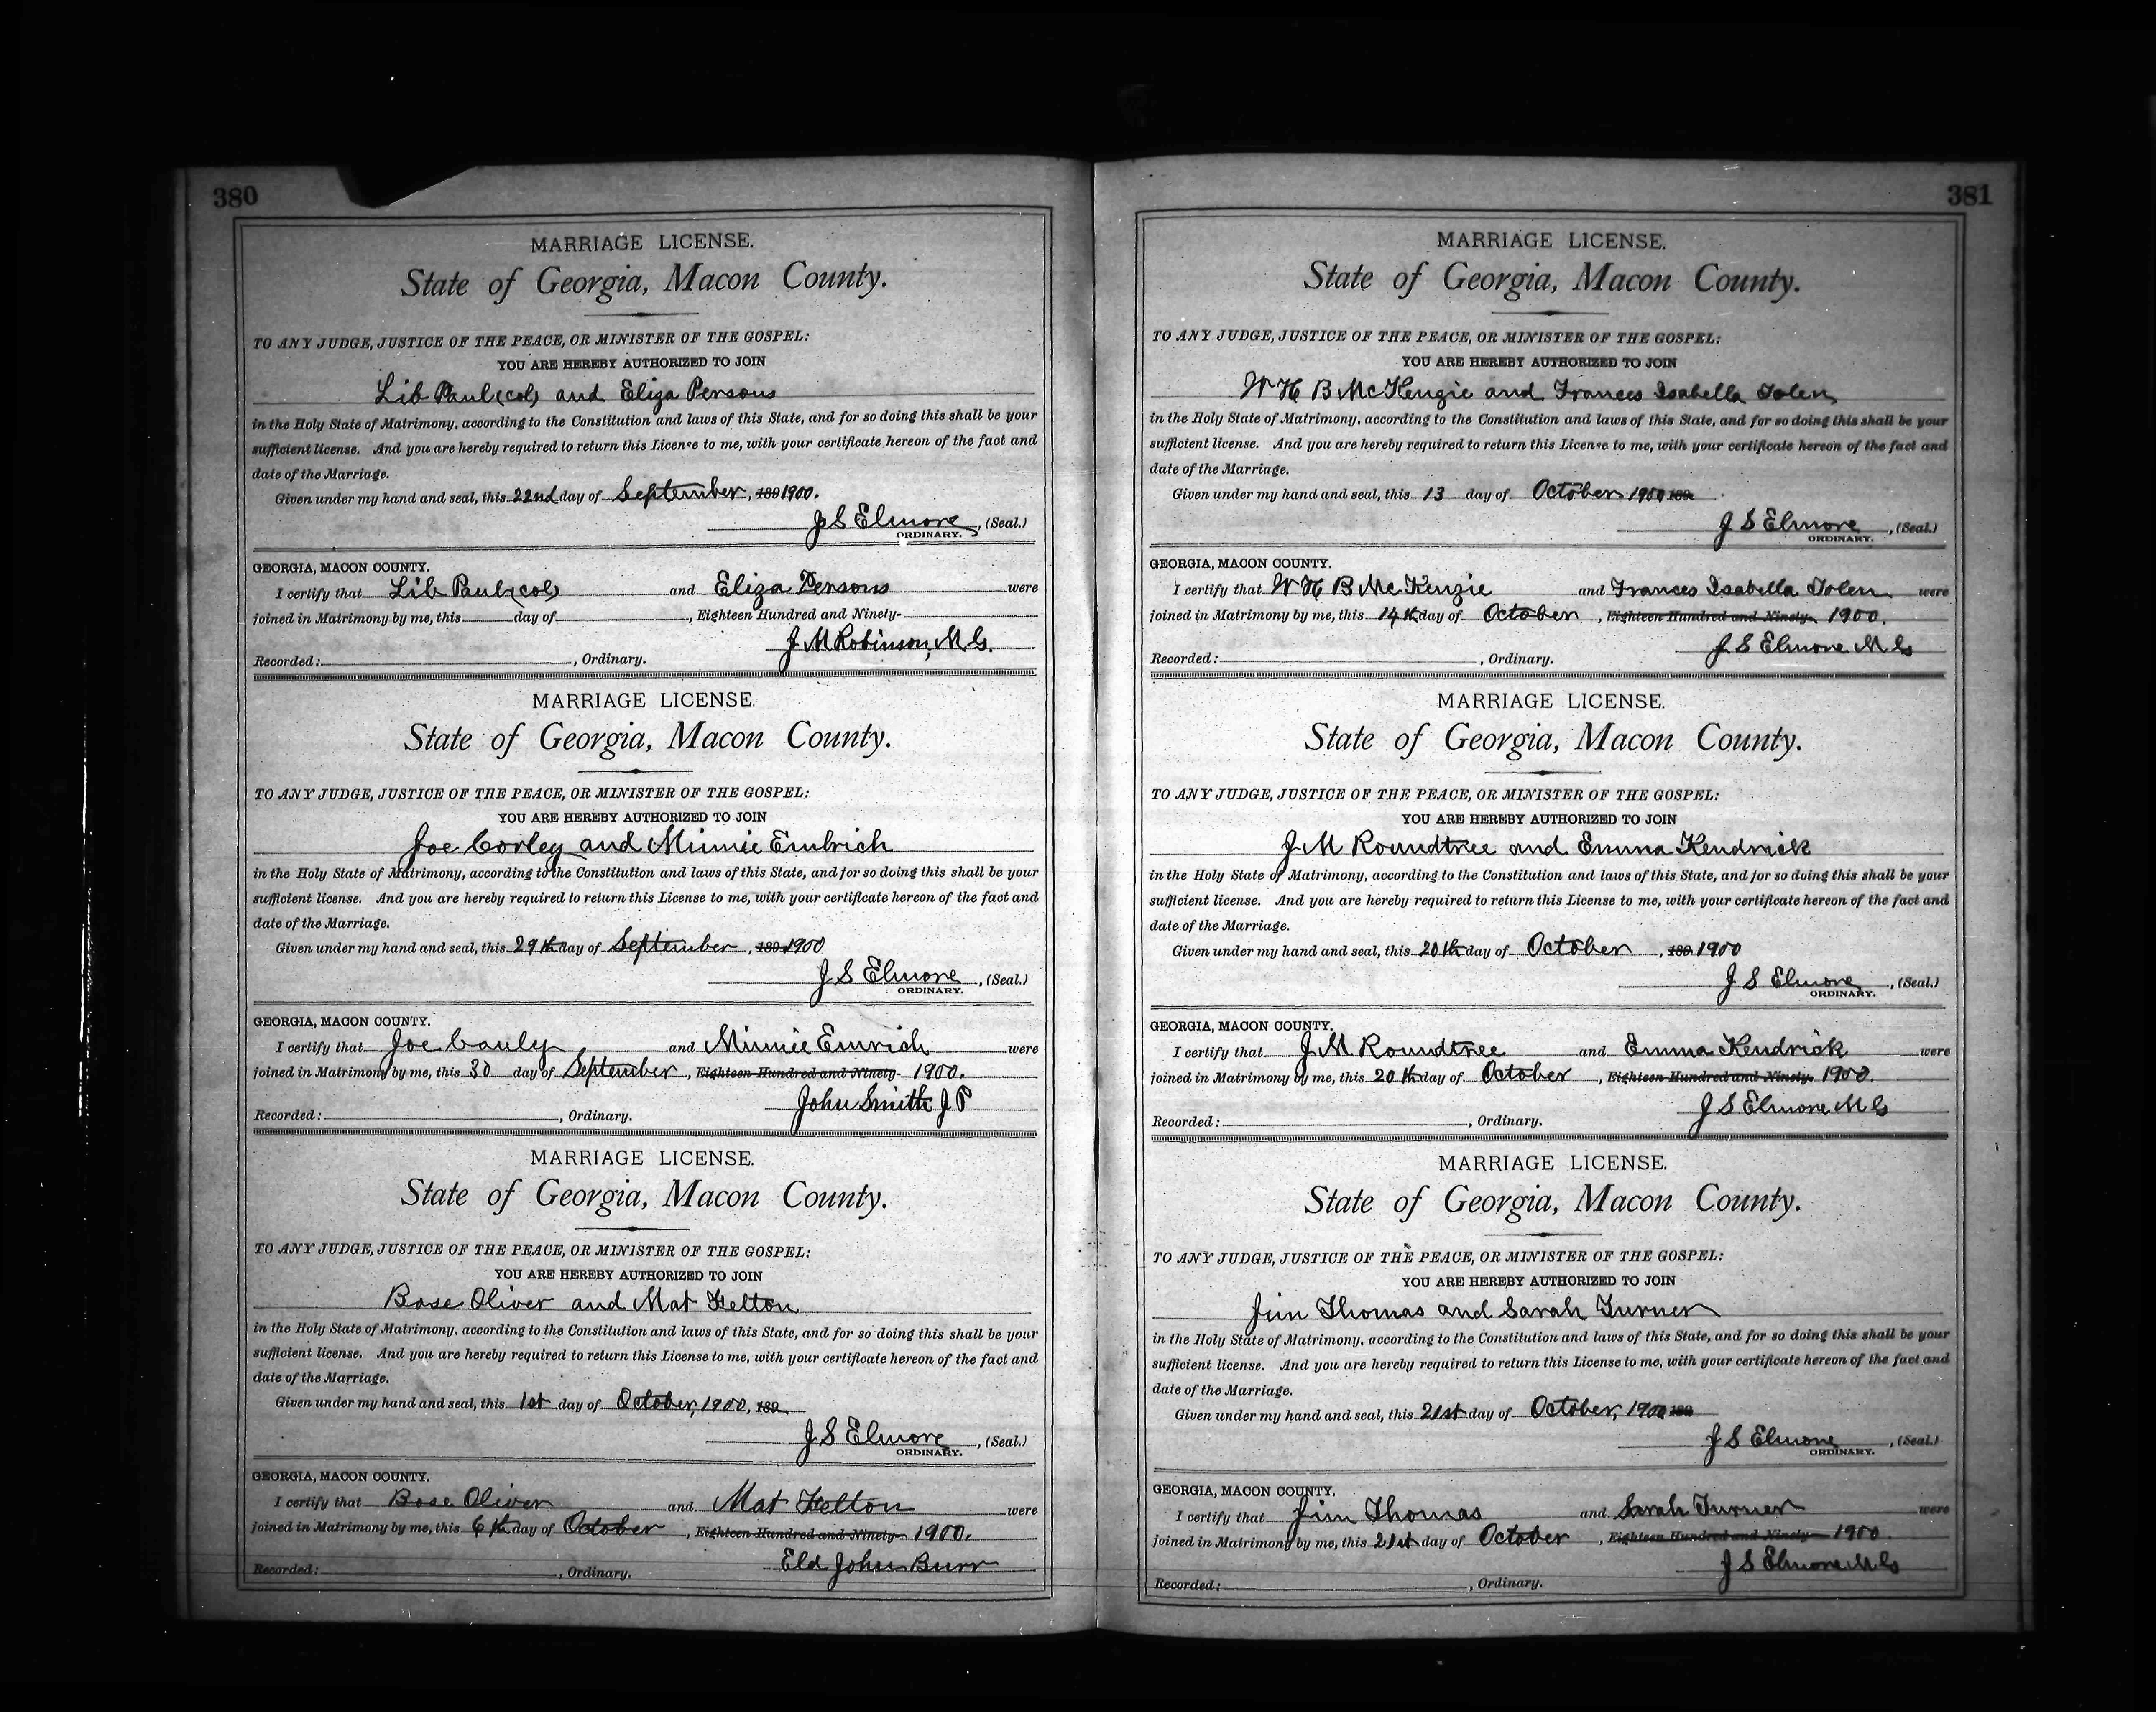 380
MARRIAGE LICENSE.
State of Georgia, Macon County.
TO ANY JUDGE, JUSTICE OF THE PEACE, OR MINISTER OF THE GOSPEL:
YOU ARE HEREBY AUTHORIZED TO JOIN
Lib Paul (col) and Eliza Persons
in the Holy State of Matrimony, according to the Constitution and laws of this State, and for so doing this shall be your
sufficient license. And you are hereby required to return this License to me, with your certificate hereon of the fact and
date of the Marriage.
Given under my hand and seal, this 22nd day of September, 189 1900.
J S Elmore, (Seal.)
ORDINARY.
GEORGIA, MACON COUNTY.
I certify that Lib Paul (col) and Eliza Persons were
joined in Matrimony by me, this day of , Eighteen Hundred and Ninety-
J M Robinson, M G.
Recorded: , Ordinary.
MARRIAGE LICENSE.
State of Georgia, Macon County.
TO ANY JUDGE, JUSTICE OF THE PEACE, OR MINISTER OF THE GOSPEL:
YOU ARE HEREBY AUTHORIZED TO JOIN
Joe Corley and Minnie Embrich
in the Holy State of Matrimony, according to the Constitution and laws of this State, and for so doing this shall be your
sufficient license. And you are hereby required to return this License to me, with your certificate hereon of the fact and
date of the Marriage.
Given under my hand and seal, this 29th day of September, 189 1900
J S Elmore, (Seal.)
ORDINARY.
GEORGIA, MACON COUNTY.
I certify that Joe Cauly and Minnie Emrich were
joined in Matrimony by me, this 30 day of September, Eighteen Hundred and Ninety- 1900.
John Smith J P
Recorded: , Ordinary.
MARRIAGE LICENSE.
State of Georgia, Macon County.
TO ANY JUDGE, JUSTICE OF THE PEACE, OR MINISTER OF THE GOSPEL:
YOU ARE HEREBY AUTHORIZED TO JOIN
Bose Oliver and Mat Felton
in the Holy State of Matrimony, according to the Constitution and laws of this State, and for so doing this shall be your
sufficient license. And you are hereby required to return this License to me, with your certificate hereon of the fact and
date of the Marriage.
Given under my hand and seal, this 1st day of October, 1900, 189
J S Elmore, (Seal.)
ORDINARY.
GEORGIA, MACON COUNTY.
I certify that Bose Oliver and Mat Felton were
joined in Matrimony by me, this 6th day of October, Eighteen Hundred and Ninety- 1900.
Eld John Burr
Recorded: , Ordinary.
381
MARRIAGE LICENSE.
State of Georgia, Macon County.
TO ANY JUDGE, JUSTICE OF THE PEACE, OR MINISTER OF THE GOSPEL:
YOU ARE HEREBY AUTHORIZED TO JOIN
W H B McKenzie and Frances Isabella Tolen
in the Holy State of Matrimony, according to the Constitution and laws of this State, and for so doing this shall be your
sufficient license. And you are hereby required to return this License to me, with your certificate hereon of the fact and
date of the Marriage.
Given under my hand and seal, this 13 day of October 1900 189
J S Elmore, (Seal.)
ORDINARY.
GEORGIA, MACON COUNTY.
I certify that W H B McKenzie and Frances Isabella Tolen were
joined in Matrimony by me, this 14th day of October, Eighteen Hundred and Ninety- 1900.
J S Elmore M G
Recorded: , Ordinary.
MARRIAGE LICENSE.
State of Georgia, Macon County.
TO ANY JUDGE, JUSTICE OF THE PEACE, OR MINISTER OF THE GOSPEL:
YOU ARE HEREBY AUTHORIZED TO JOIN
J M Roundtree and Emma Kendrick
in the Holy State of Matrimony, according to the Constitution and laws of this State, and for so doing this shall be your
sufficient license. And you are hereby required to return this License to me, with your certificate hereon of the fact and
date of the Marriage.
Given under my hand and seal, this 20th day of October, 189 1900
J S Elmore, (Seal.)
ORDINARY.
GEORGIA, MACON COUNTY.
I certify that J M Roundtree and Emma Kendrick were
joined in Matrimony by me, this 20th day of October, Eighteen Hundred and Ninety- 1900.
J S Elmore M G
Recorded: , Ordinary.
MARRIAGE LICENSE.
State of Georgia, Macon County.
TO ANY JUDGE, JUSTICE OF THE PEACE, OR MINISTER OF THE GOSPEL:
YOU ARE HEREBY AUTHORIZED TO JOIN
Jim Thomas and Sarah Turner
in the Holy State of Matrimony, according to the Constitution and laws of this State, and for so doing this shall be your
sufficient license. And you are hereby required to return this License to me, with your certificate hereon of the fact and
date of the Marriage.
Given under my hand and seal, this 21st day of October, 1900 189
J S Elmore, (Seal.)
ORDINARY.
GEORGIA, MACON COUNTY.
I certify that Jim Thomas and Sarah Turner were
joined in Matrimony by me, this 21st day of October, Eighteen Hundred and Ninety- 1900.
J S Elmore M G
Recorded: , Ordinary.